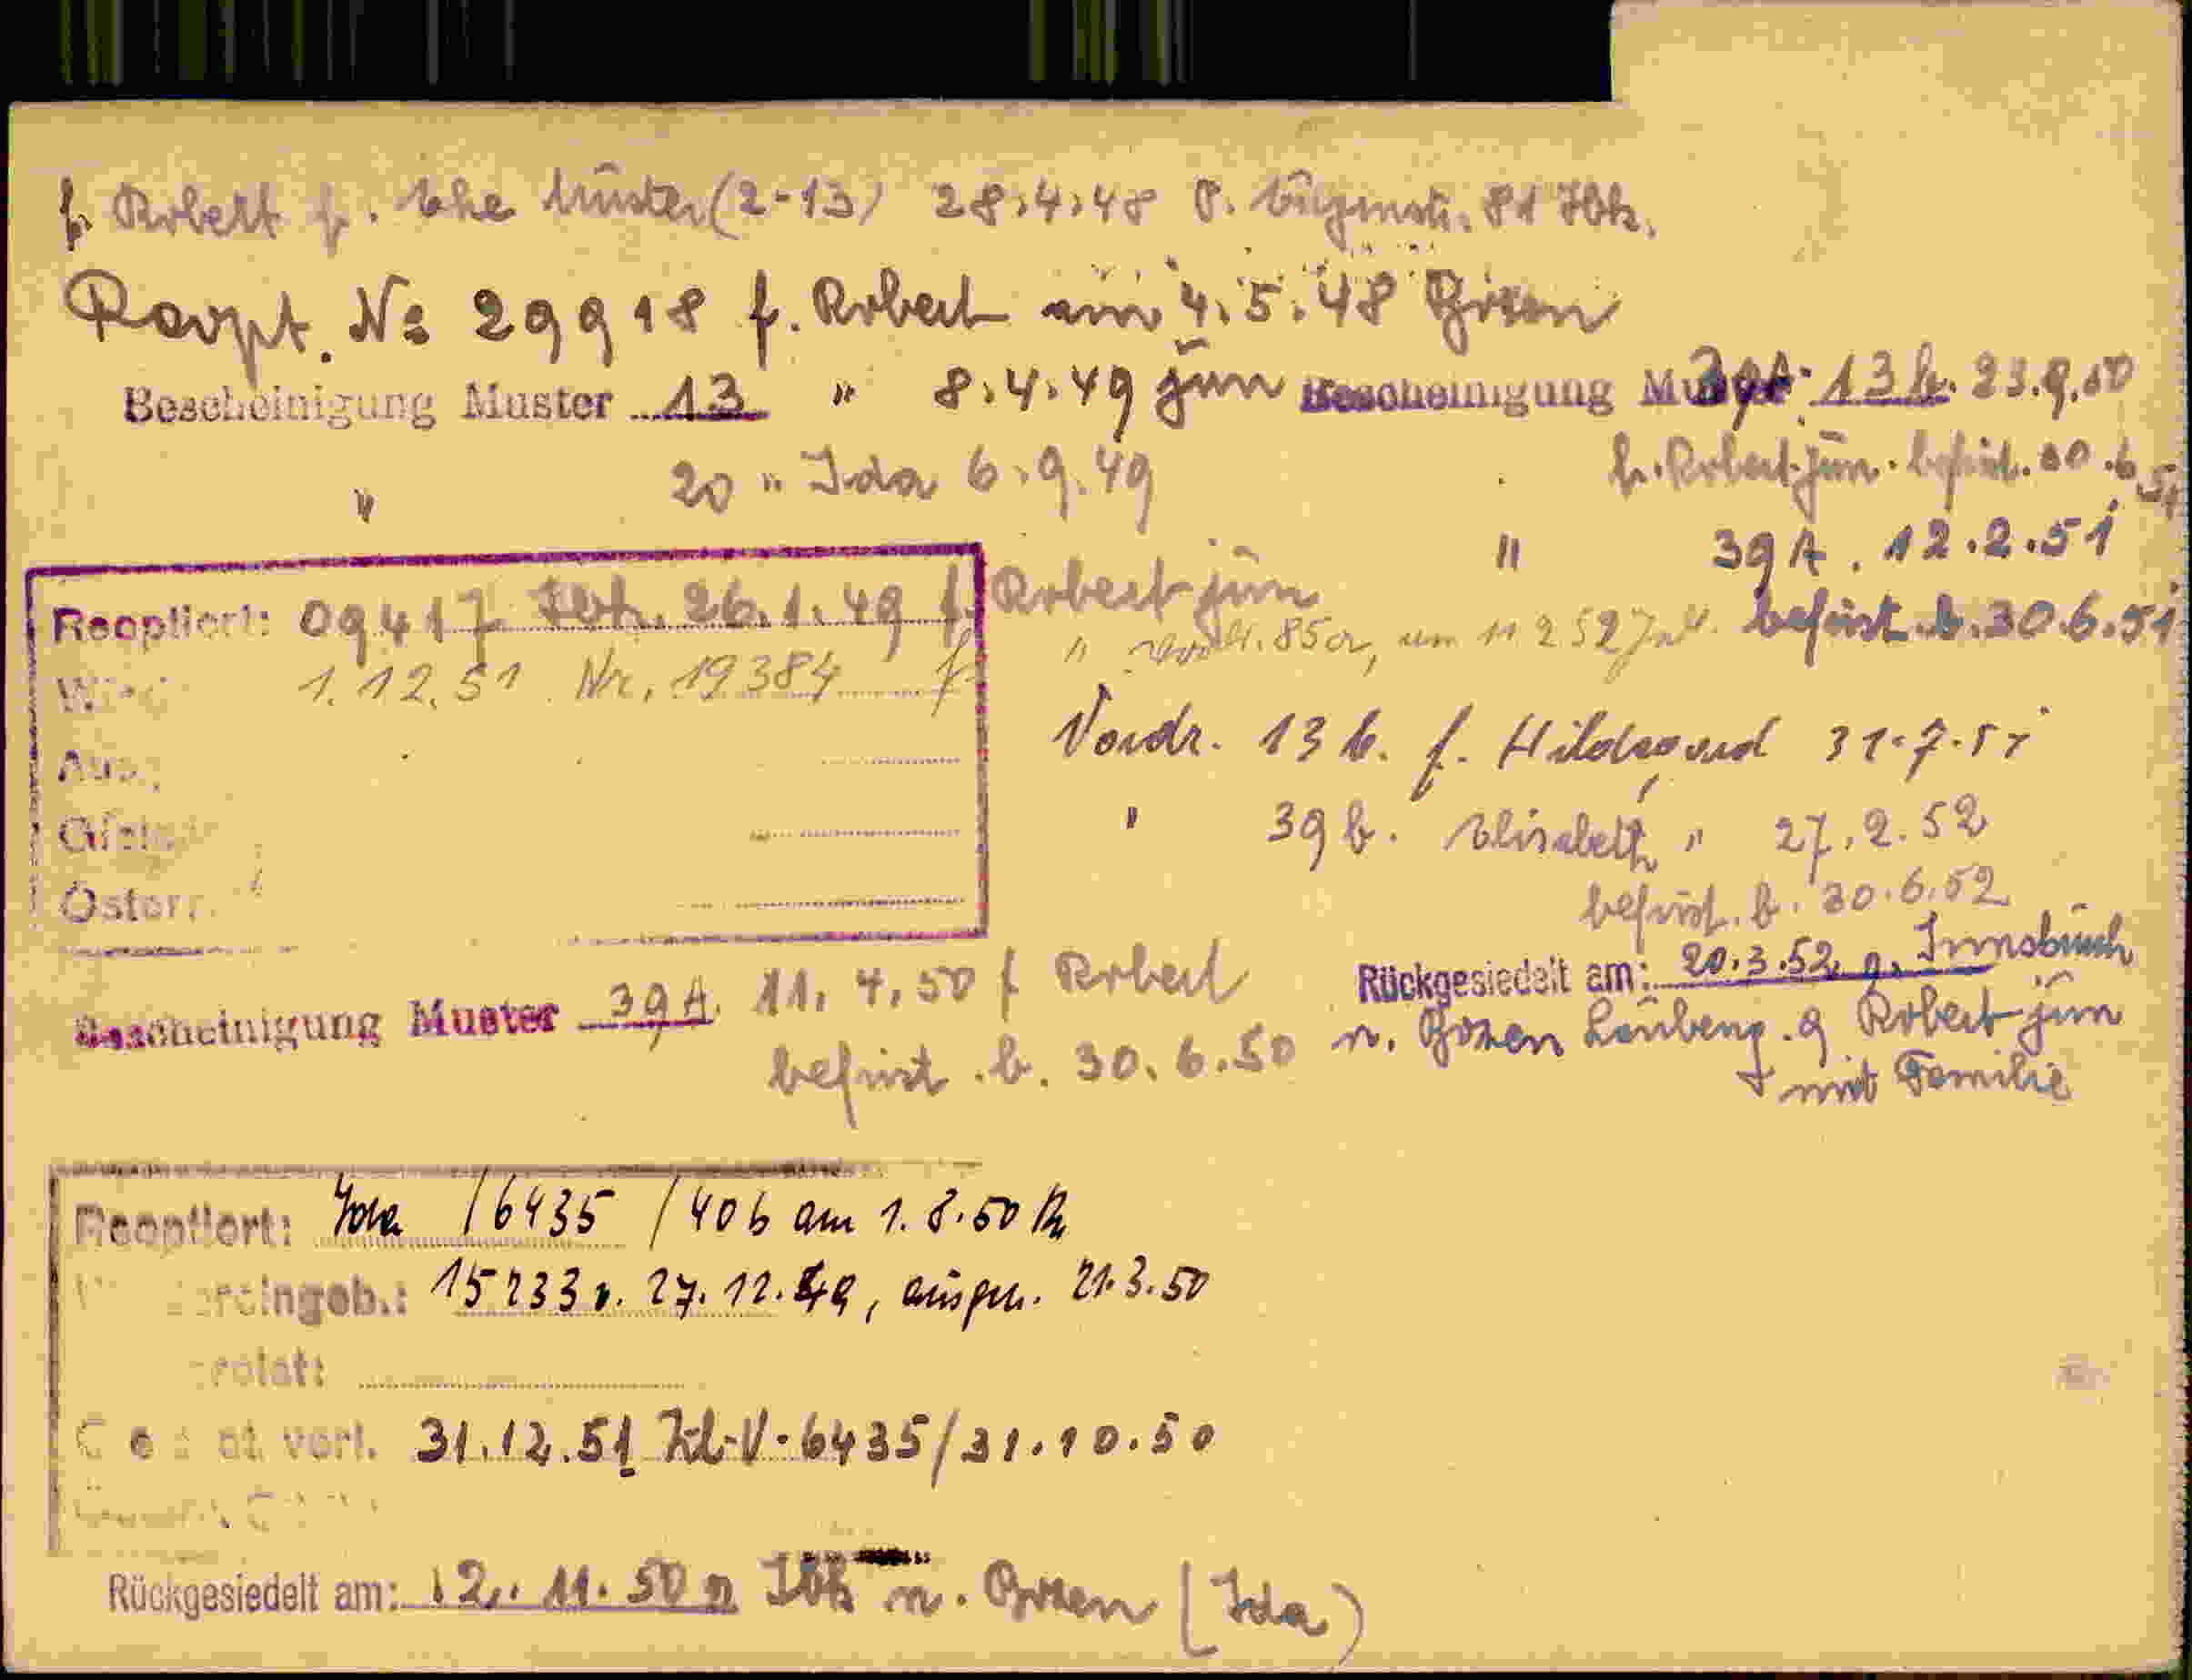 f. Robert f. Ehe Muster (2-13) 28.4.48 81 Ibk.
Reopt. No 29918 f. Robert am 4.5.48 Bozen
Bescheinigung Muster 13 " 8.4.49 jun
" 20 " Ida 6.9.49
Bescheinigung Muster 39A. 13b. 23.9.50
f. Robert jun. befrist. 30.6.51
" 39A. 12.2.51
befrist. b. 30.6.51
Reoptiert: 09417 Ibk. 26.1.49 f. Robert jun
1.12.51. Nr. 19384 f
Österr.
Vordr. 13b. f. Hildegard 31.7.51
" 39b. Elisabeth " 27.2.52
befrist. b. 30.6.52
Rückgesiedelt am: 20.3.52 Innsbruck
n. Bozen Laubeng. 9 Robert jun
+ mit Familie
Bescheinigung Muster 39A. 11.4.50 f Robert
befrist. b. 30.6.50
Reoptiert: Ida /6435 /406 am 1.8.50
eingeb.: 15233 27.12.49, 21.3.50
31.12.51 6435/31.10.50
Rückgesiedelt am: 12.11.50 Ibk n. Bozen (Ida)